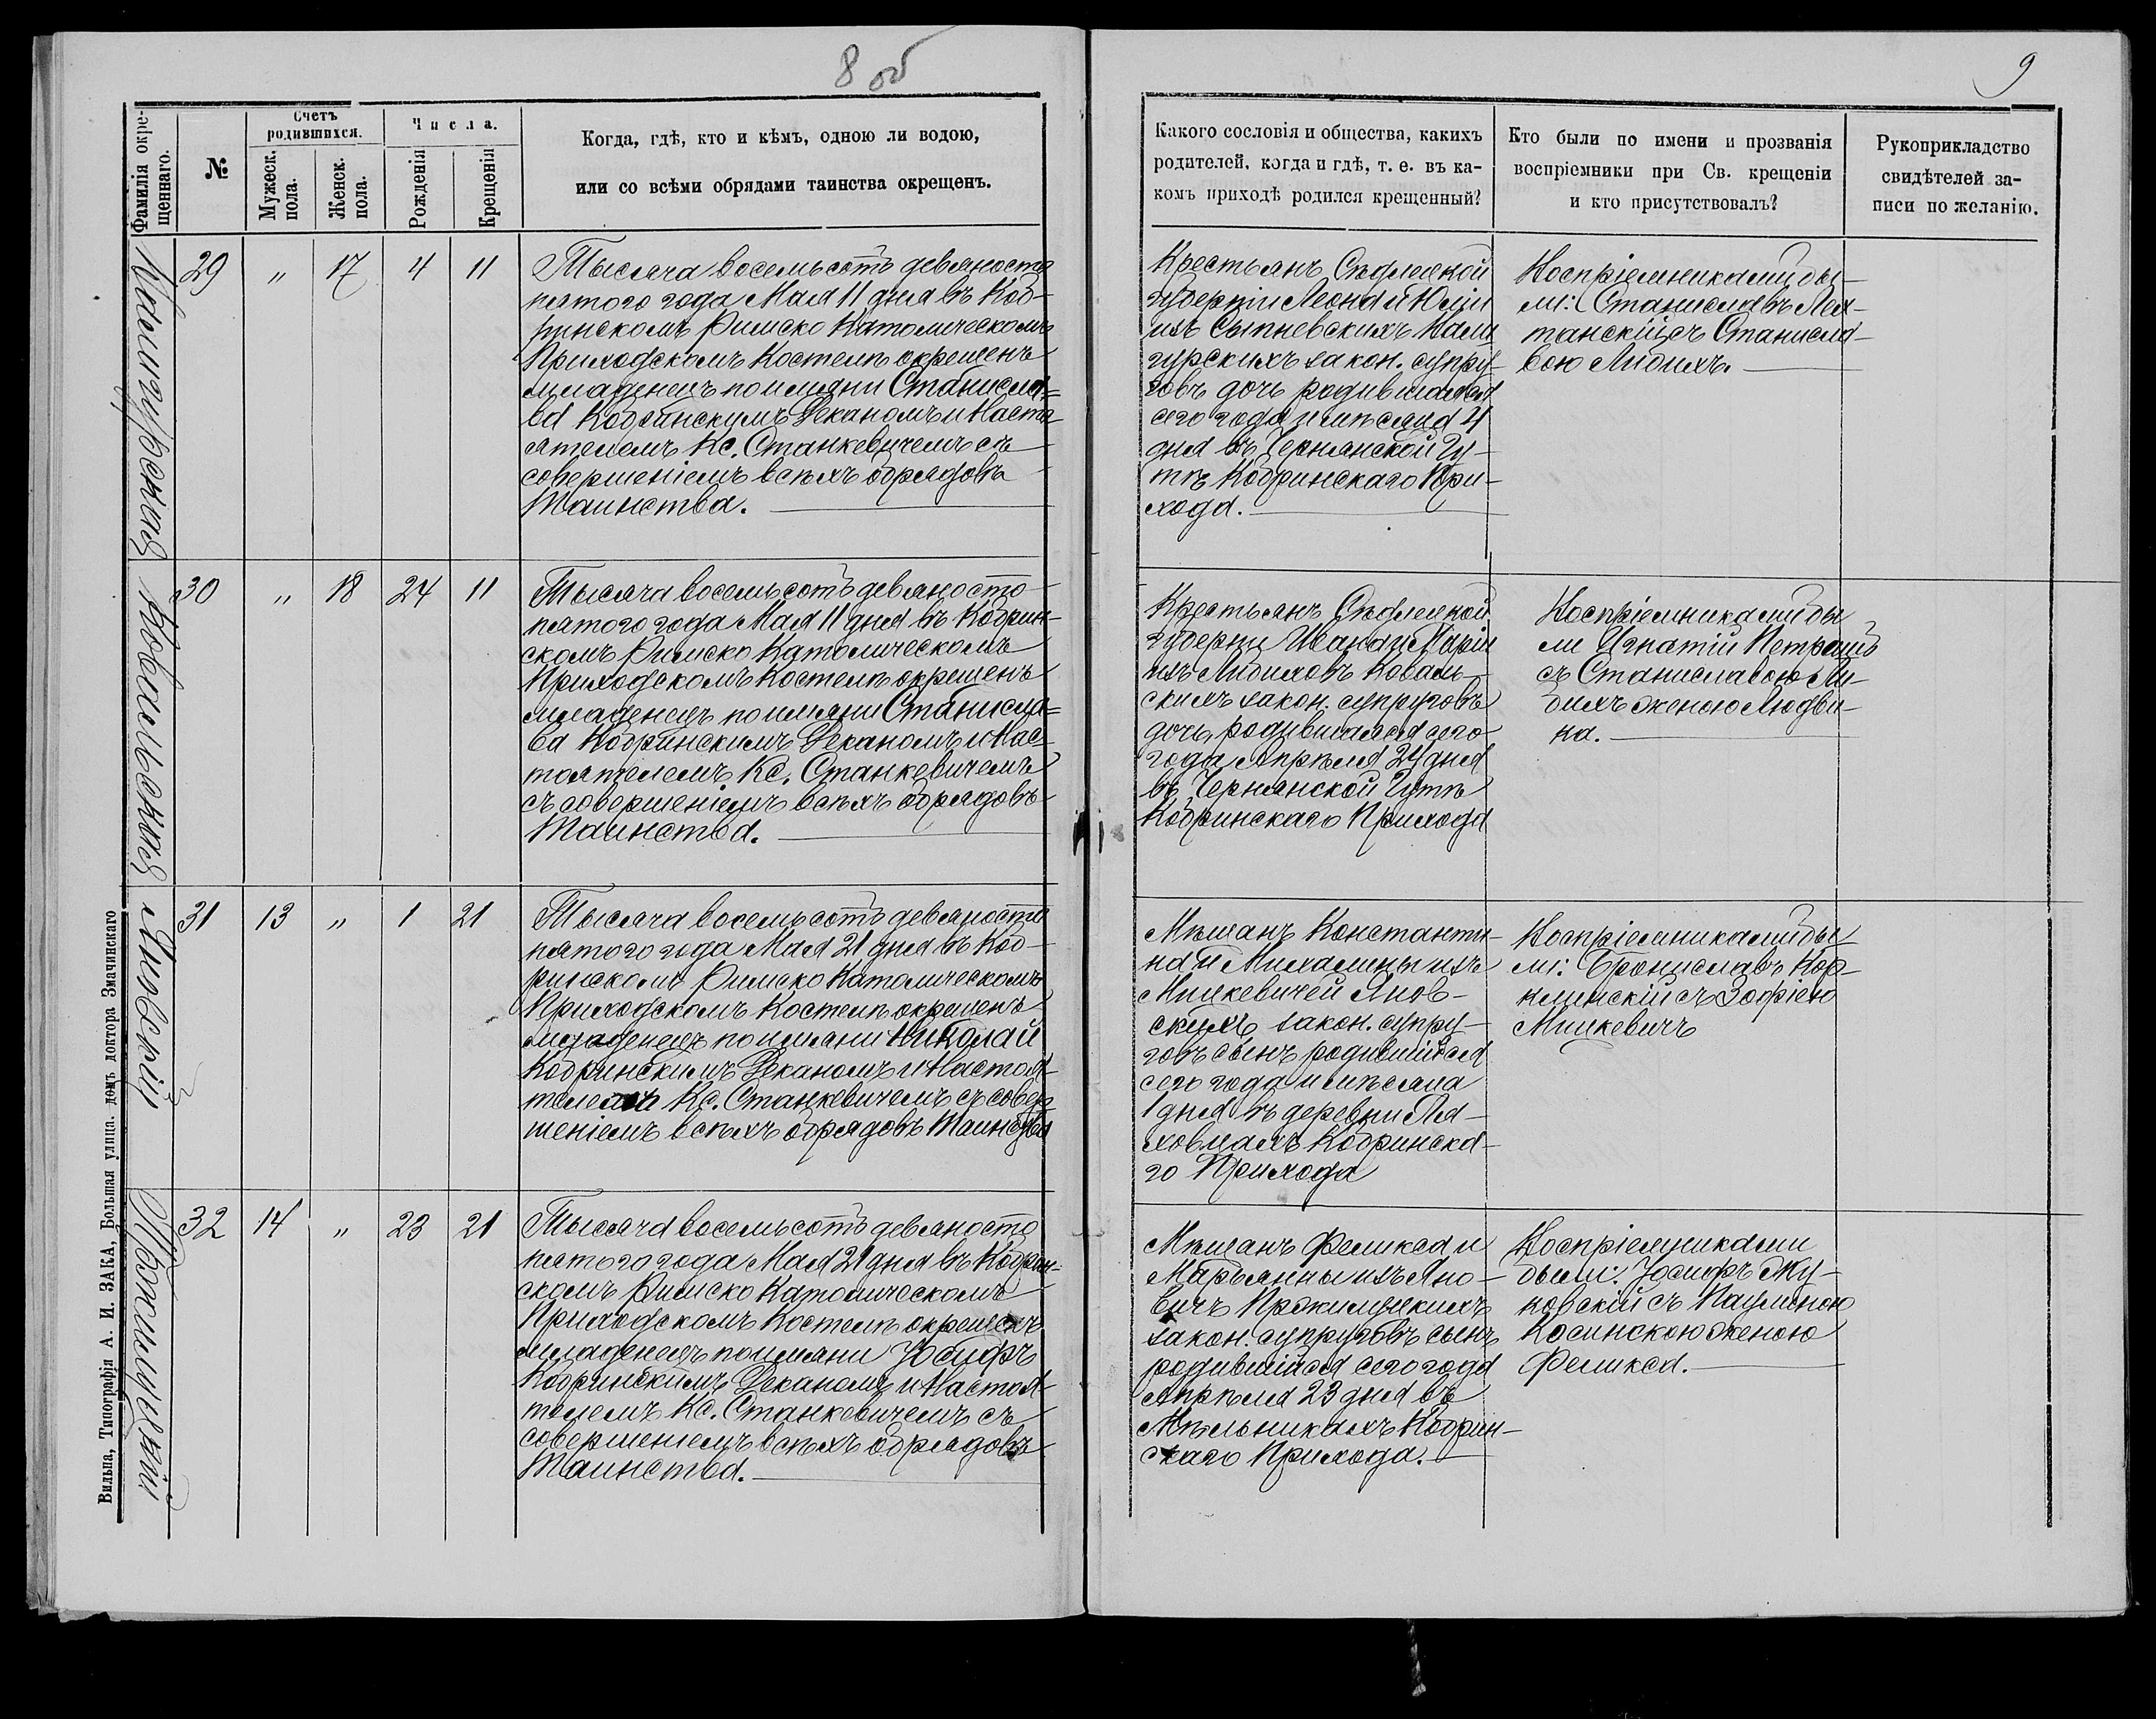 8 об
9
Фамилія окре-
щеннаго.
№
Счетъ
родившихся.
Мужеск.
пола.
Женск.
пола.
Числа.
Рожденія
Крещенія
Когда, гдѣ, кто и кѣмъ, одною ли водою,
или со всѣми обрядами таинства окрещенъ.
Какого сословія и общества, какихъ
родителей, когда и гдѣ, т. е. въ ка-
комъ приходѣ родился крещенный?
Кто были по имени и прозванія
воспріемники при Св. крещеніи
и кто присутствовалъ?
Рукоприкладство
свидѣтелей за-
писи по желанію.
29 " 17 4 11
Тысяча восемьсотъ девяносто
пятого года Мая 11 дня въ Коб-
ринскомъ Римско Католическомъ
Приходскомъ Костелѣ окрещенъ
младенецъ по имяни Станисла=
ва Кобринскимъ Деканомъ и Насто-
ятелемъ Кс. Станкевичемъ съ
совершеніемъ всѣхъ обрядовъ
Таинства.
Крестьянъ Сѣдлецкой
губерніи Леона и Юліи
изъ Сыпневскихъ Кали-
гурскихъ закон. супру-
говъ дочь родившаяся
сего года и мѣсяца 4
дня въ Чернянской Гу-
тѣ Кобринскаго При-
хода.
Воспріемниками бы-
ли: Станиславъ
съ Станисла-
вою Либихъ.
30 " 18 24 11
Ковальская
Тысяча восемьсотъ девяносто
пятого года Мая 11 дня въ Кобрин-
скомъ Римско Католическомъ
Приходскомъ Костелѣ окрещенъ
младенецъ по имяни Станисла=
ва Кобринскимъ Деканомъ и Нас-
тоятелемъ Кс. Станкевичемъ
съ совершеніемъ всѣхъ обрядовъ
Таинства.
Крестьянъ Сѣдлецкой
губерни Ивана и Маріи
изъ Либиховъ Коваль-
скихъ закон. супруговъ
дочь, родившаяся сего
года Апрѣля 24 дня
въ Чернянской Гутѣ
Кобринскаго Прихода
Воспріемниками бы
ли Игнатій Петрашъ
съ Станиславою Ли-
бихъ женою Людви-
ка.
31 13 " 1 21
Яновскій
Тысяча восемьсотъ девяносто
пятого года Мая 21 дня въ Коб-
ринскомъ Римско Католическомъ
Приходскомъ Костелѣ окрещенъ
младенецъ по имяни Николай
Кобринскимъ Деканомъ и Настоя-
телемъ Кс. Станкевичемъ съ совер-
шеніемъ всѣхъ обрядовъ Таинства
Мѣщанъ Константи-
на и Михалины изъ
Мицкевичей Янов-
скихъ закон. супру-
говъ сынъ родившійся
сего года и мѣсяца
1 дня въ деревни Ля-
ховцахъ Кобринска-
го Прихода
Воспріемниками бы-
ли: Брониславъ
съ Зофіею
Мицкевичъ
32 14 " 23 21
Тысяча восемьсотъ девяносто
пятого года Мая 21 дня въ Кобрин-
скомъ Римско Католическомъ
Приходскомъ Костелѣ окрещенъ
младенецъ по имяни Іосифъ
Кобринскимъ Деканомъ и Настоя-
телемъ Кс. Станкевичемъ съ
совершеніемъ всѣхъ обрядовъ
Таинства.
Мѣщанъ Феликса и
Марьянны изъ Яно-
вичъ
закон. супруговъ сынъ
родившійся сего года
Апрѣля 23 дня въ
Мѣльникахъ Кобрин-
скаго Прихода.
Воспріемниками
были: Іосифъ Жу-
ковскій съ Паулиною
Косинскою женою
Феликса.
Вильна, Типографія А. И. ЗАКА, Большая улица. домъ доктора Змачинскаго